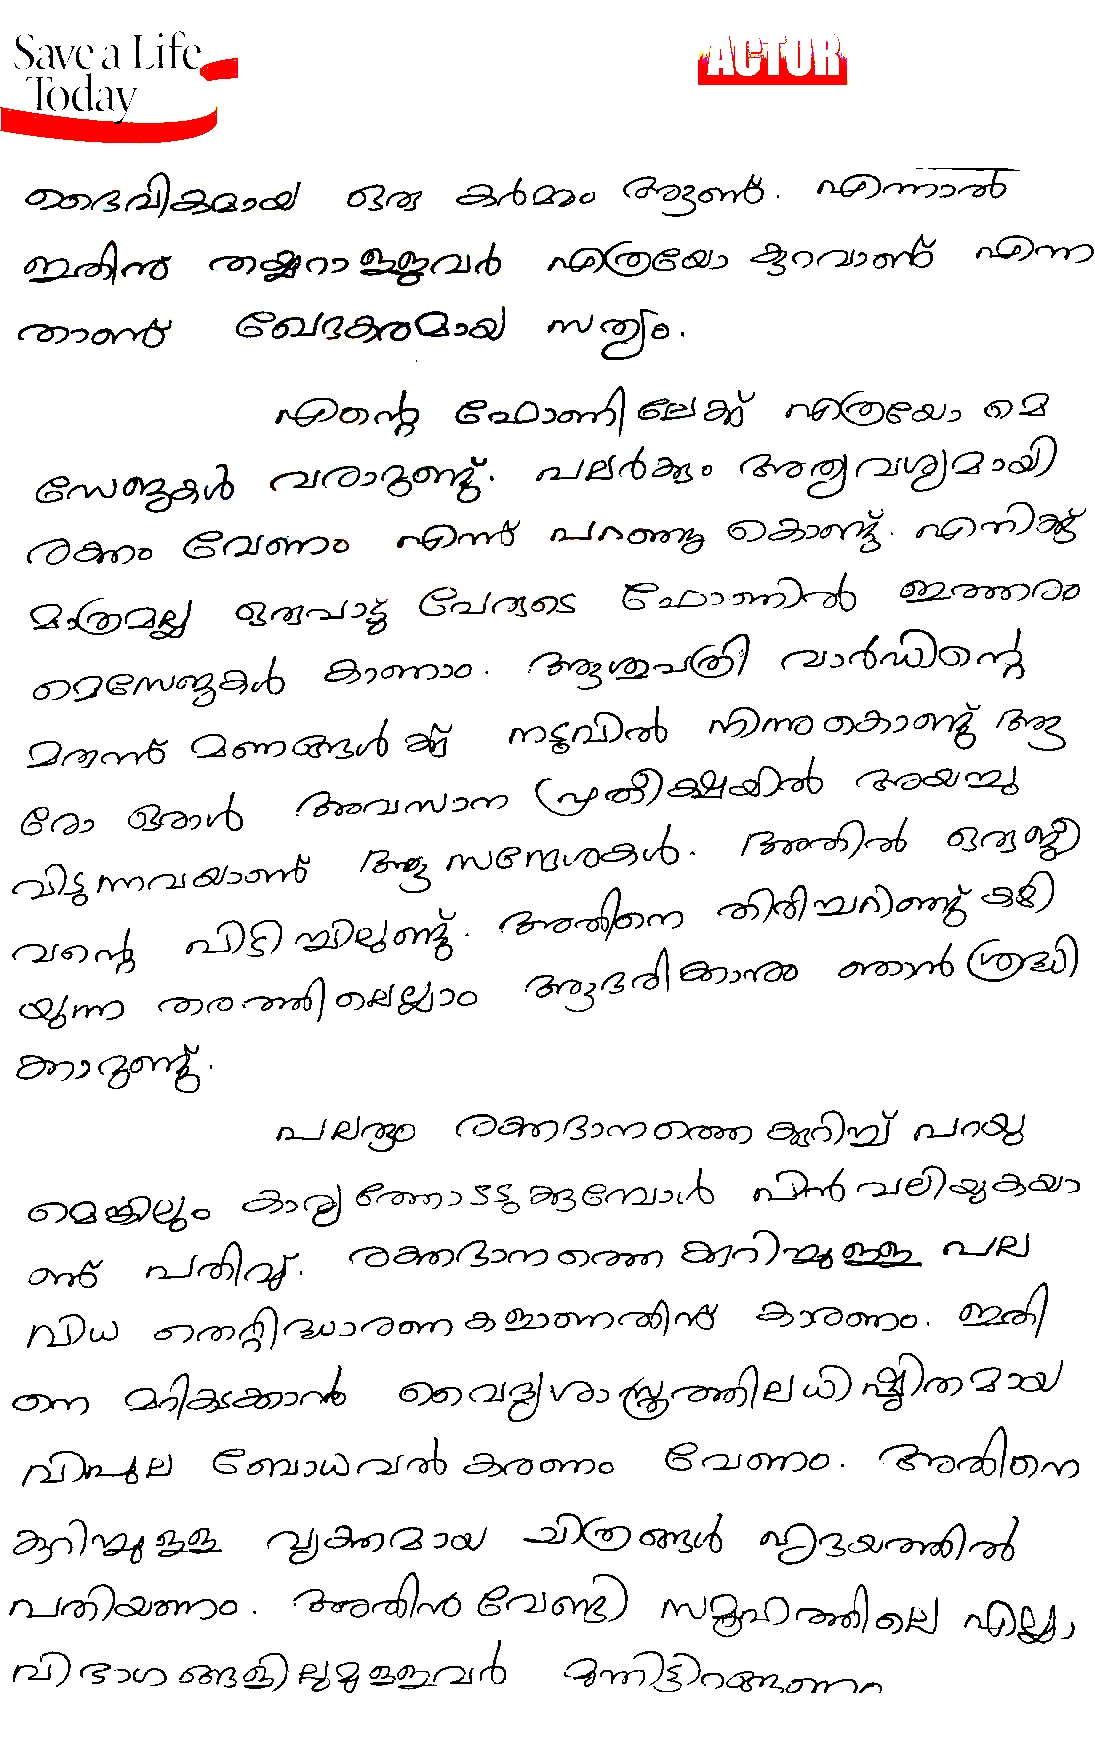 Save a Life
Today
ACTOR
ദൈവികമായ ഒരു കർമ്മം ആണ്. എന്നാൽ
ഇതിന് തയ്യറാള്ളവർ എത്രയോ കുറവാണ് എന്ന
താണ് ഖേദകരമായ സത്യം.
എന്റെ ഫോണിലേക്ക് എത്രയോ മെ
സേജുകൾ വരാറുണ്ട്. പലർക്കും അത്യവശ്യമായി
രക്തം വേണം എന്ന് പറഞ്ഞു കൊണ്ട്. എനിക്ക്
മാത്രമല്ല ഒരുപാട്ടു പേരുടെ ഫോണിൽ ഇത്തരം
മെസേജുകൾ കാണാം. ആശുപത്രി വാർഡിന്റെ
മരുന്ന് മണങ്ങൾക്ക് നടുവിൽ നിന്നുകൊണ്ട് ആ
രോ ഒരാൾ അവസാന പ്രതീക്ഷയിൽ അയച്ചു
വിടുന്നവയാണ് ആ സന്ദേശകൾ. അതിൽ ഒരു ജീ
വന്റെ പിടിച്ചിലുണ്ട്. അതിനെ തിരിച്ചറിഞ്ഞ് കഴി
യുന്ന തരത്തിലെല്ലാം ആദരിക്കാനും ഞാൻ ശ്രദ്ധി
ക്കാറുണ്ട്.
പലരും രക്തദാനത്തെ കുറിച്ച് പറയു
മെങ്കിലും കാര്യത്തോടടുക്കുമ്പോൾ പിൻവലിയുകയാ
ണ് പതിവ്. രക്തദാനത്തെ കുറിച്ചുള്ള പല
വിധ തെറ്റിദ്ധാരണകളാണതിന് കാരണം. ഇതി
നെ മറികടക്കാൻ വൈദ്യശാസ്ത്രത്തിലധിഷ്ഠിതമായ
വിപുല ബോധവൽകരണം വേണം. അതിനെ
കുറിച്ചുള്ള വ്യക്തമായ ചിത്രങ്ങൾ ഹൃദയത്തിൽ
പതിയണം. അതിൻ വേണ്ടി സമൂഹത്തിലെ എല്ലാ
വിഭാഗങ്ങളിലുമുള്ളവർ മുന്നിട്ടിറങ്ങണം